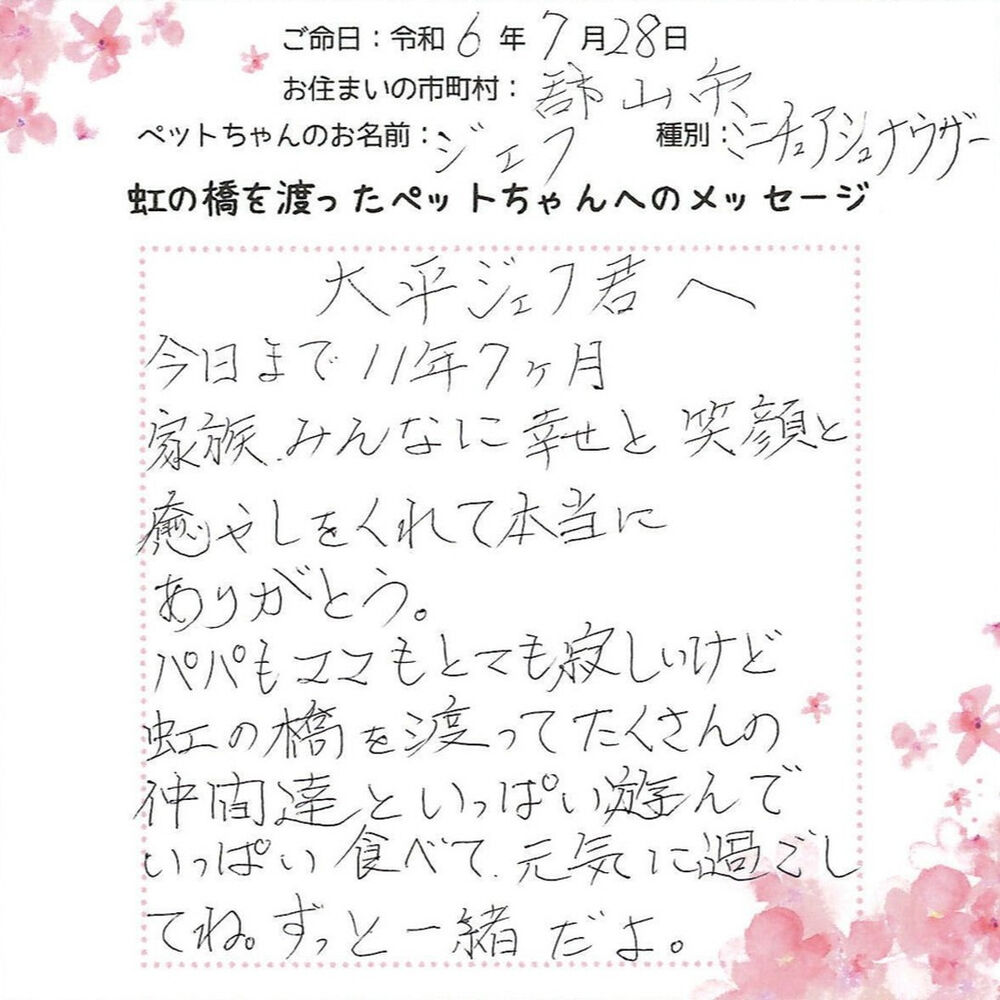 ご命日：令和 6 年 7 月28日
お住まいの市町村：郡山市
ペットちゃんのお名前：ジェフ 種別：ミニチュアシュナウザー
虹の橋を渡ったペットちゃんへのメッセージ
大平ジェフ君へ
今日まで11年7ヶ月
家族、みんなに幸せと笑顔と
癒やしをくれて本当に
ありがとう。
パパもママもとても寂しいけど
虹の橋を渡ってたくさんの
仲間達といっぱい遊んで
いっぱい食べて、元気に過ごし
てね。ずっと一緒だよ。